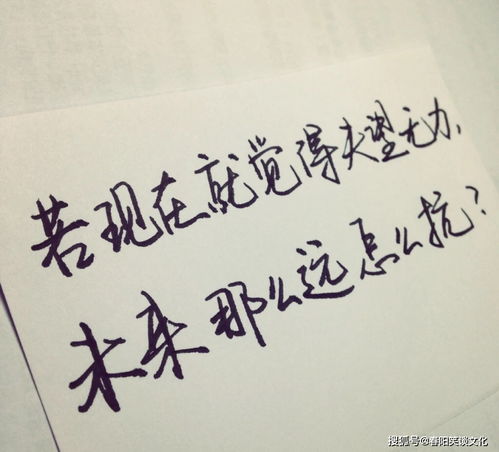 若现在就觉得失望无力,
未来那么远怎么抗?
搜狐号@春阳笑谈文化